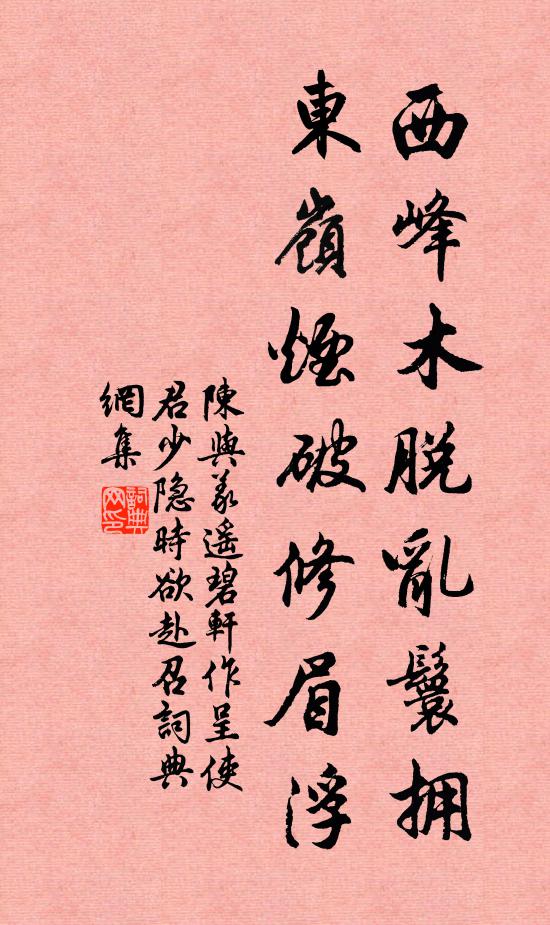 西峰木脱亂鬟拥
東嶺煙破修眉浮
陳與義遙碧軒作呈使
君少隐時欲赴召詞典
網集
詞典
网印